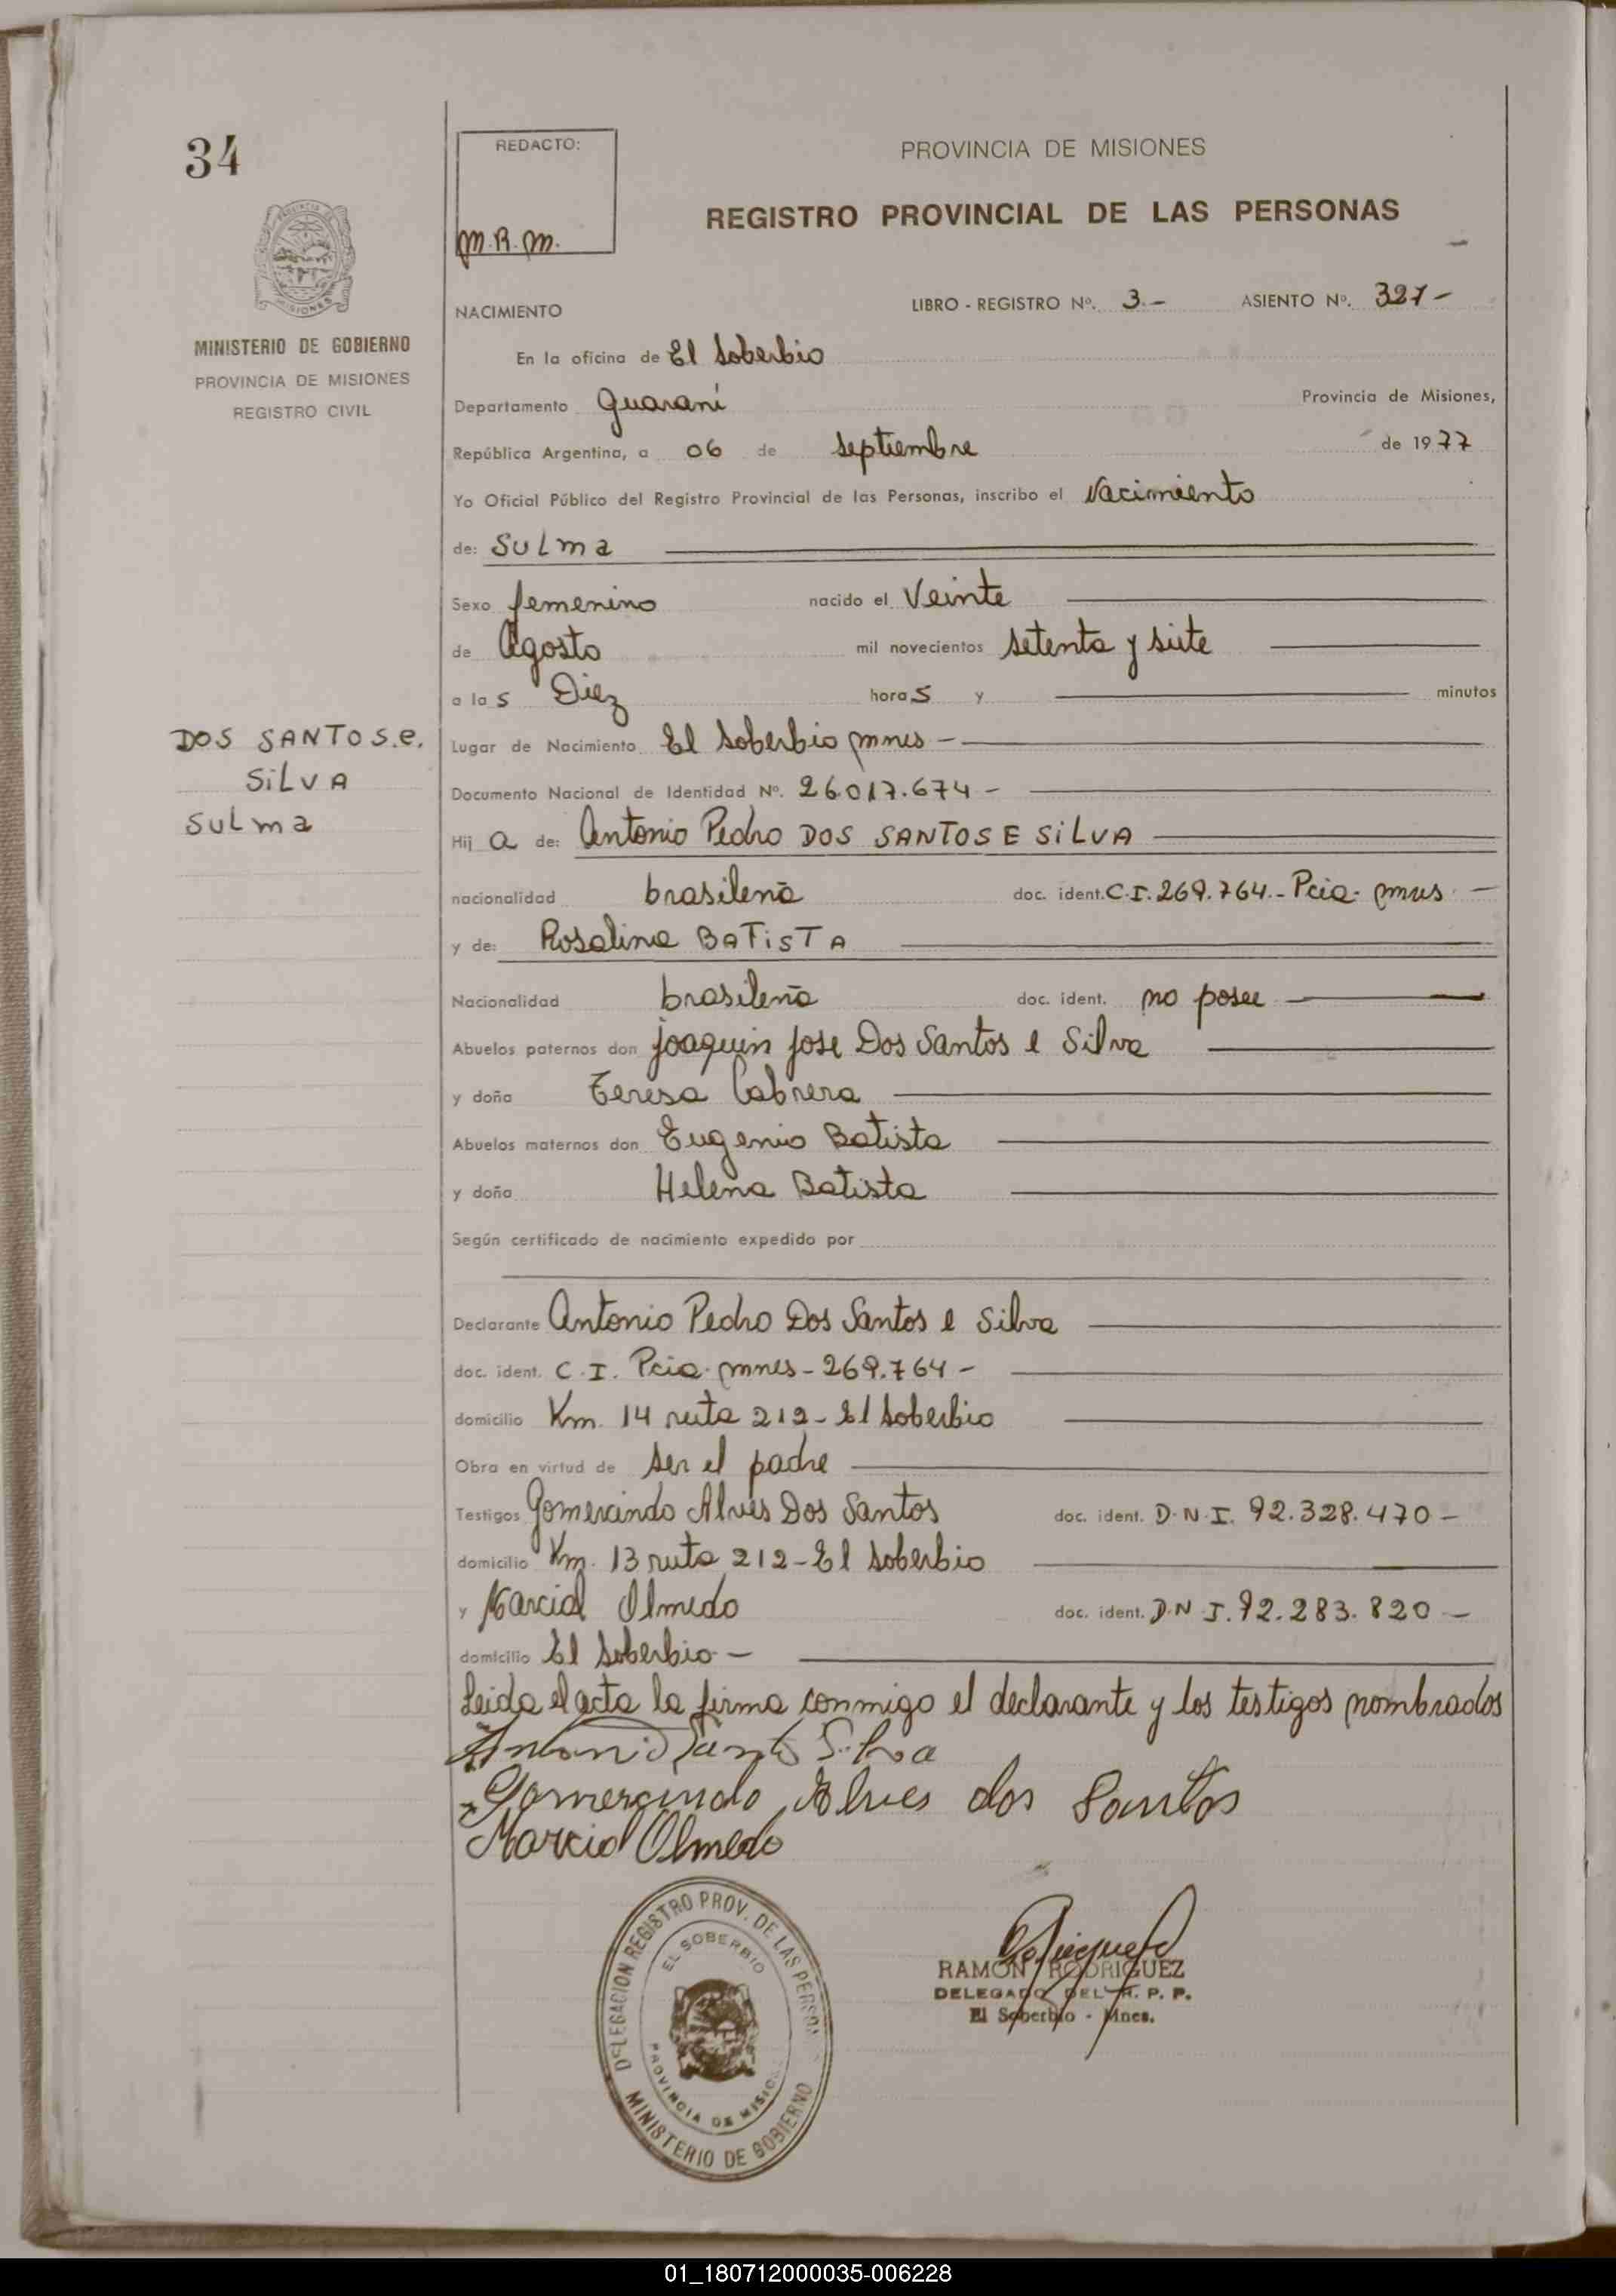 34
REDACTO:
M.R.M.
PROVINCIA DE MISIONES
REGISTRO PROVINCIAL DE LAS PERSONAS
PROVINCIA DE MISIONES
MINISTERIO DE GOBIERNO
PROVINCIA DE MISIONES
REGISTRO CIVIL
NACIMIENTO LIBRO - REGISTRO Nº. 3.- ASIENTO Nº. 327-
En la oficina de El Soberbio
Departamento Guaraní Provincia de Misiones,
República Argentina, a 06 de Septiembre de 1977
Yo Oficial Público del Registro Provincial de las Personas, inscribo el Nacimiento
de: SULma
Sexo femenino nacido el Veinte
de Agosto mil novecientos setenta y siete
a las Diez horas y minutos
DOS SANTOS.e.
SiLVA
SULma
Lugar de Nacimiento El Soberbio mnes -
Documento Nacional de Identidad Nº. 26017.674 -
Hij a de: Antonio Pedro DOS SANTOS E SiLVA
nacionalidad brasileña doc. ident. C.I. 269.764.- Pcia. mnes -
y de: Rosalina BATiSTA
Nacionalidad brasileña doc. ident. no posee
Abuelos paternos don joaquin jose Dos Santos e Silva
y doña Teresa Cabrera
Abuelos maternos don Eugenio Batista
y doña Helena Batista
Según certificado de nacimiento expedido por
Declarante Antonio Pedro Dos Santos e Silva
doc. ident. C.I. Pcia. mnes - 269.764 -
domicilio Km. 14 ruta 212 - El Soberbio
Obra en virtud de ser el padre
Testigos Gomercindo Alves Dos Santos doc. ident. D.N.I. 92.328.470 -
domicilio Km. 13 ruta 212 - El Soberbio
y Marcial Olmedo doc. ident. D.N.I. 92.283.820 -
domicilio El Soberbio -
Leida el acta la firma conmigo el declarante y los testigos nombrados
Antoni Santo Silva
Gomercindo Alves dos Santos
Marcial Olmedo
DELEGACION REGISTRO PROV. DE LAS PERSON
EL SOBERBIO
PROVINCIA DE MISIO
MINISTERIO DE GOBIERNO
RAMON RODRIGUEZ
DELEGADO DEL R. P. P.
El Soberbio - Mnes.
01_180712000035-006228